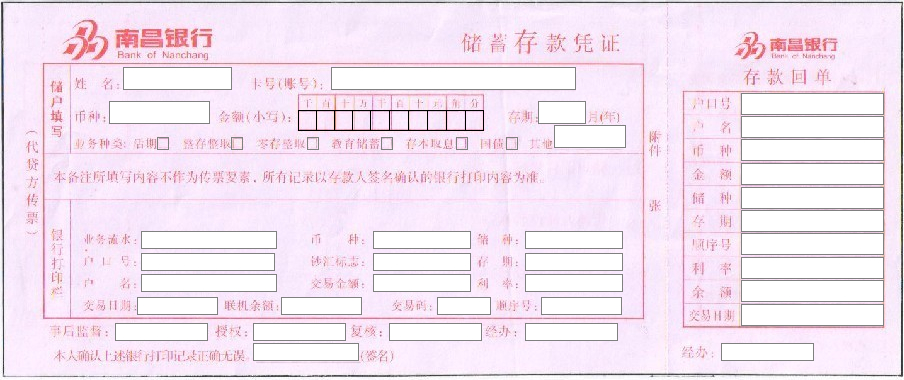 南昌银行
Bank of Nanchang
储蓄存款凭证
(代贷方传票)
储户填写
姓 名:
卡号(账号):
币种:
金额(小写):
千 百 十 万 千 百 十 元 角 分
存期:
月(年)
业务种类: 活期 整存整取 零存整取 教育储蓄 存本取息 国债 其他
本备注所填写内容不作为传票要素,所有记录以存款人签名确认的银行打印内容为准。
银行打印栏
业务流水: 币 种: 储 种:
户 口 号: 钞汇标志: 存 期:
户 名: 交易金额: 利 率:
交易日期: 联机余额: 交易码: 顺序号:
事后监督: 授权: 复核: 经办:
本人确认上述银行打印记录正确无误。 (签名)
附件
张
南昌银行
Bank of Nanchang
存款回单
户口号
户 名
币 种
金 额
储 种
存 期
顺序号
利 率
余 额
交易日期
经办: